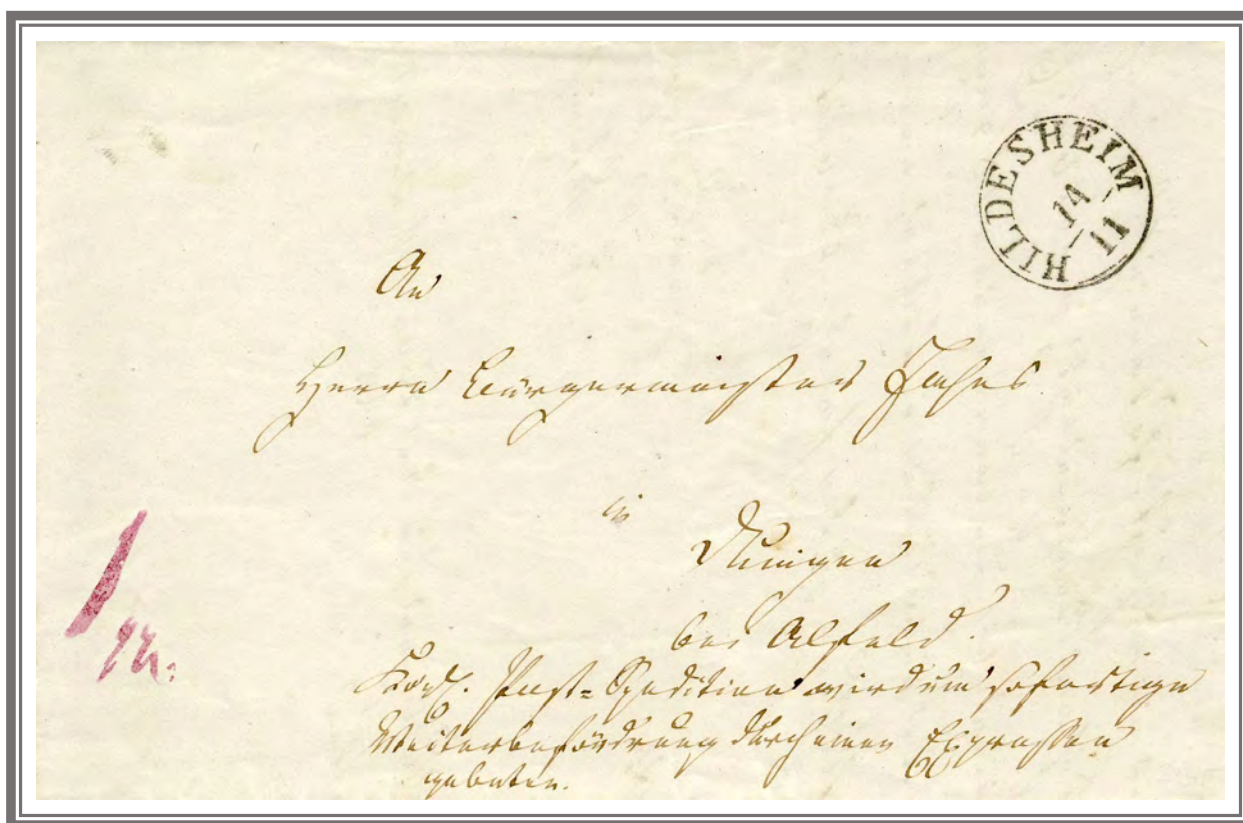 HILDESHEIM
14
11
An
Herrn Bürgermeister
in
Duingen
bei Alfeld.
Königl. Post=Spedition wird um sofortige
Weiterbefördrung durch einen Expressen
gebeten.
1